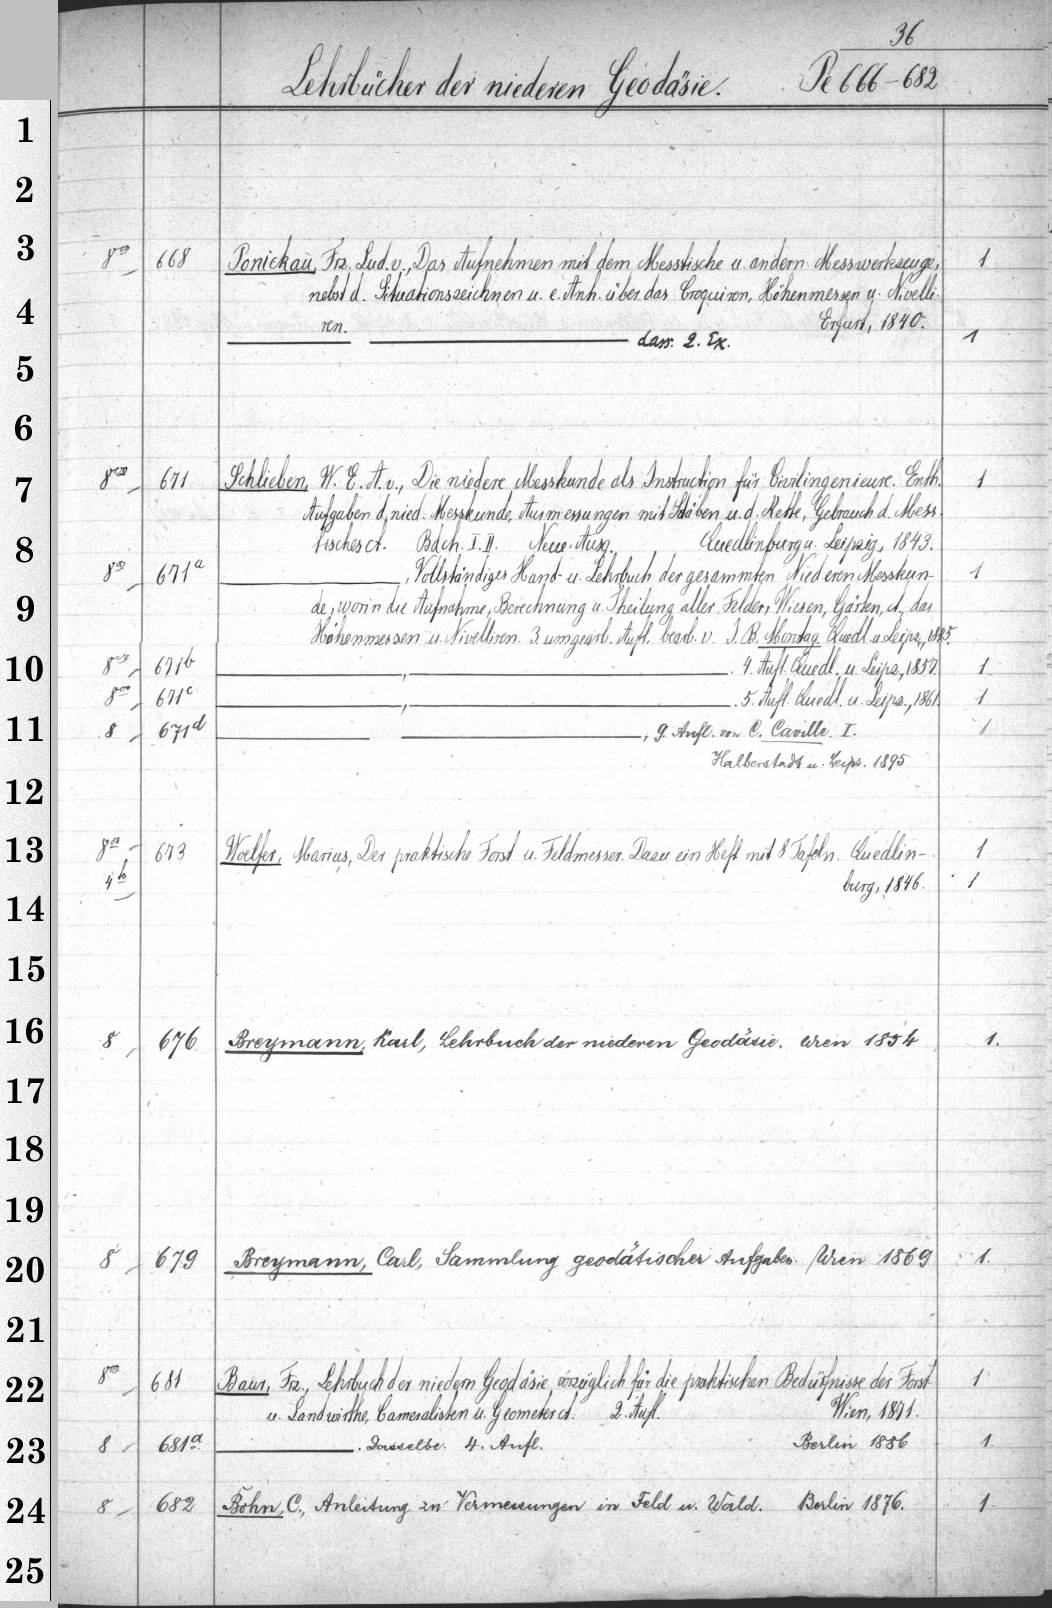 36
Lehrbücher der niederen Geodäsie. Pe 666-682
1
2
3 8vo 668 Ponickau, Frz. Lud. v., Das Aufnehmen mit dem Messtische u. andern Messwerkzeuge, 1
nebst d. Situationszeichnen u. e. Anh. über das Croquiren, Höhenmessen u. Nivelli-
4 ren. Erfurt, 1840.
dass. 2. Ex. 1
5
6
7 8vo 671 Schlieben, W. E. A. v., Die niedere Messkunde als Instruction für Civilingenieure. Enth. 1
Aufgaben d. nied. Messkunde, Ausmessungen mit Stäben u. d. Kette, Gebrauch d. Mess-
8 tisches ct. Bdch. I. II. Neue Ausg. Quedlinburg u. Leipzig, 1843.
8vo 671a , Vollständiges Hand- u. Lehrbuch der gesammten Niederen Messkun- 1
9 de, worin die Aufnahme, Berechnung u. Theilung aller Felder, Wiesen, Gärten, ct., das
Höhenmessen u. Nivelliren. 3 umgearb. Aufl. bearb. v. J. B. Montag Quedl. u. Leipz., 1845.
10 8vo 671b , . 4. Aufl. Quedl. u. Leipz., 1857. 1
8vo 671c , . 5. Aufl. Quedl. u. Leipz., 1861. 1
11 8 671d , 9. Aufl. von C. Caville. I. 1
Halberstadt u. Leipz. 1895
12
13 8vo 673 Woelfer, Marius, Der praktische Forst u. Feldmesser. Dazu ein Heft mit 8 Tafeln. Quedlin- 1
4to burg, 1846. 1
14
15
16 8 676 Breymann, Karl, Lehrbuch der niederen Geodäsie. Wien 1854 1.
17
18
19
20 8 679 Breymann, Carl, Sammlung geodätischer Aufgaben. Wien 1869 1.
21
22 8vo 681 Baur, Frz., Lehrbuch der niedern Geodäsie, vorzüglich für die praktischen Bedürfnisse der Forst 1
u. Landwirthe, Cameralisten u. Geometer ct. 2. Aufl. Wien, 1871.
23 8 681a . Dasselbe. 4. Aufl. Berlin 1886 1
24 8 682 Bohn, C., Anleitung zu Vermessungen in Feld u. Wald. Berlin 1876. 1
25